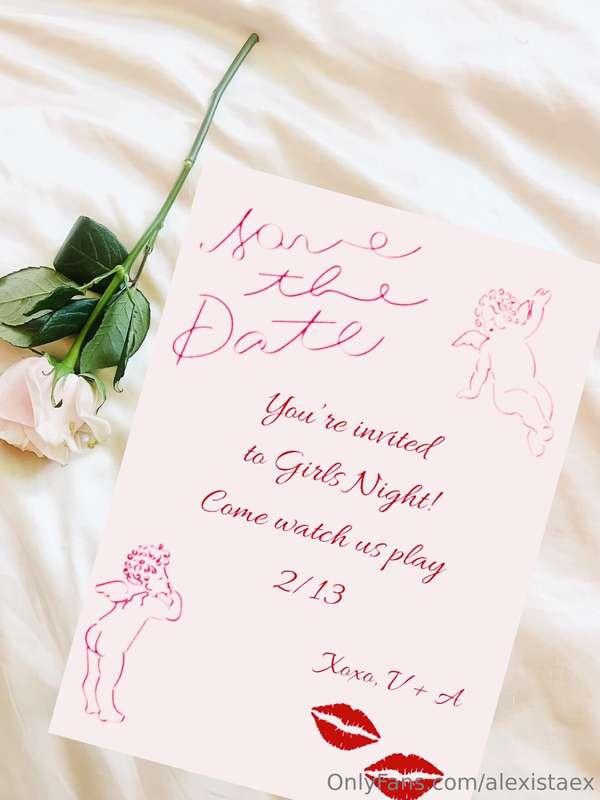 Save
the
Date
You're invited
to Girls Night!
Come watch us play
2/13
Xoxo, V + A
OnlyFans.com/alexistaex